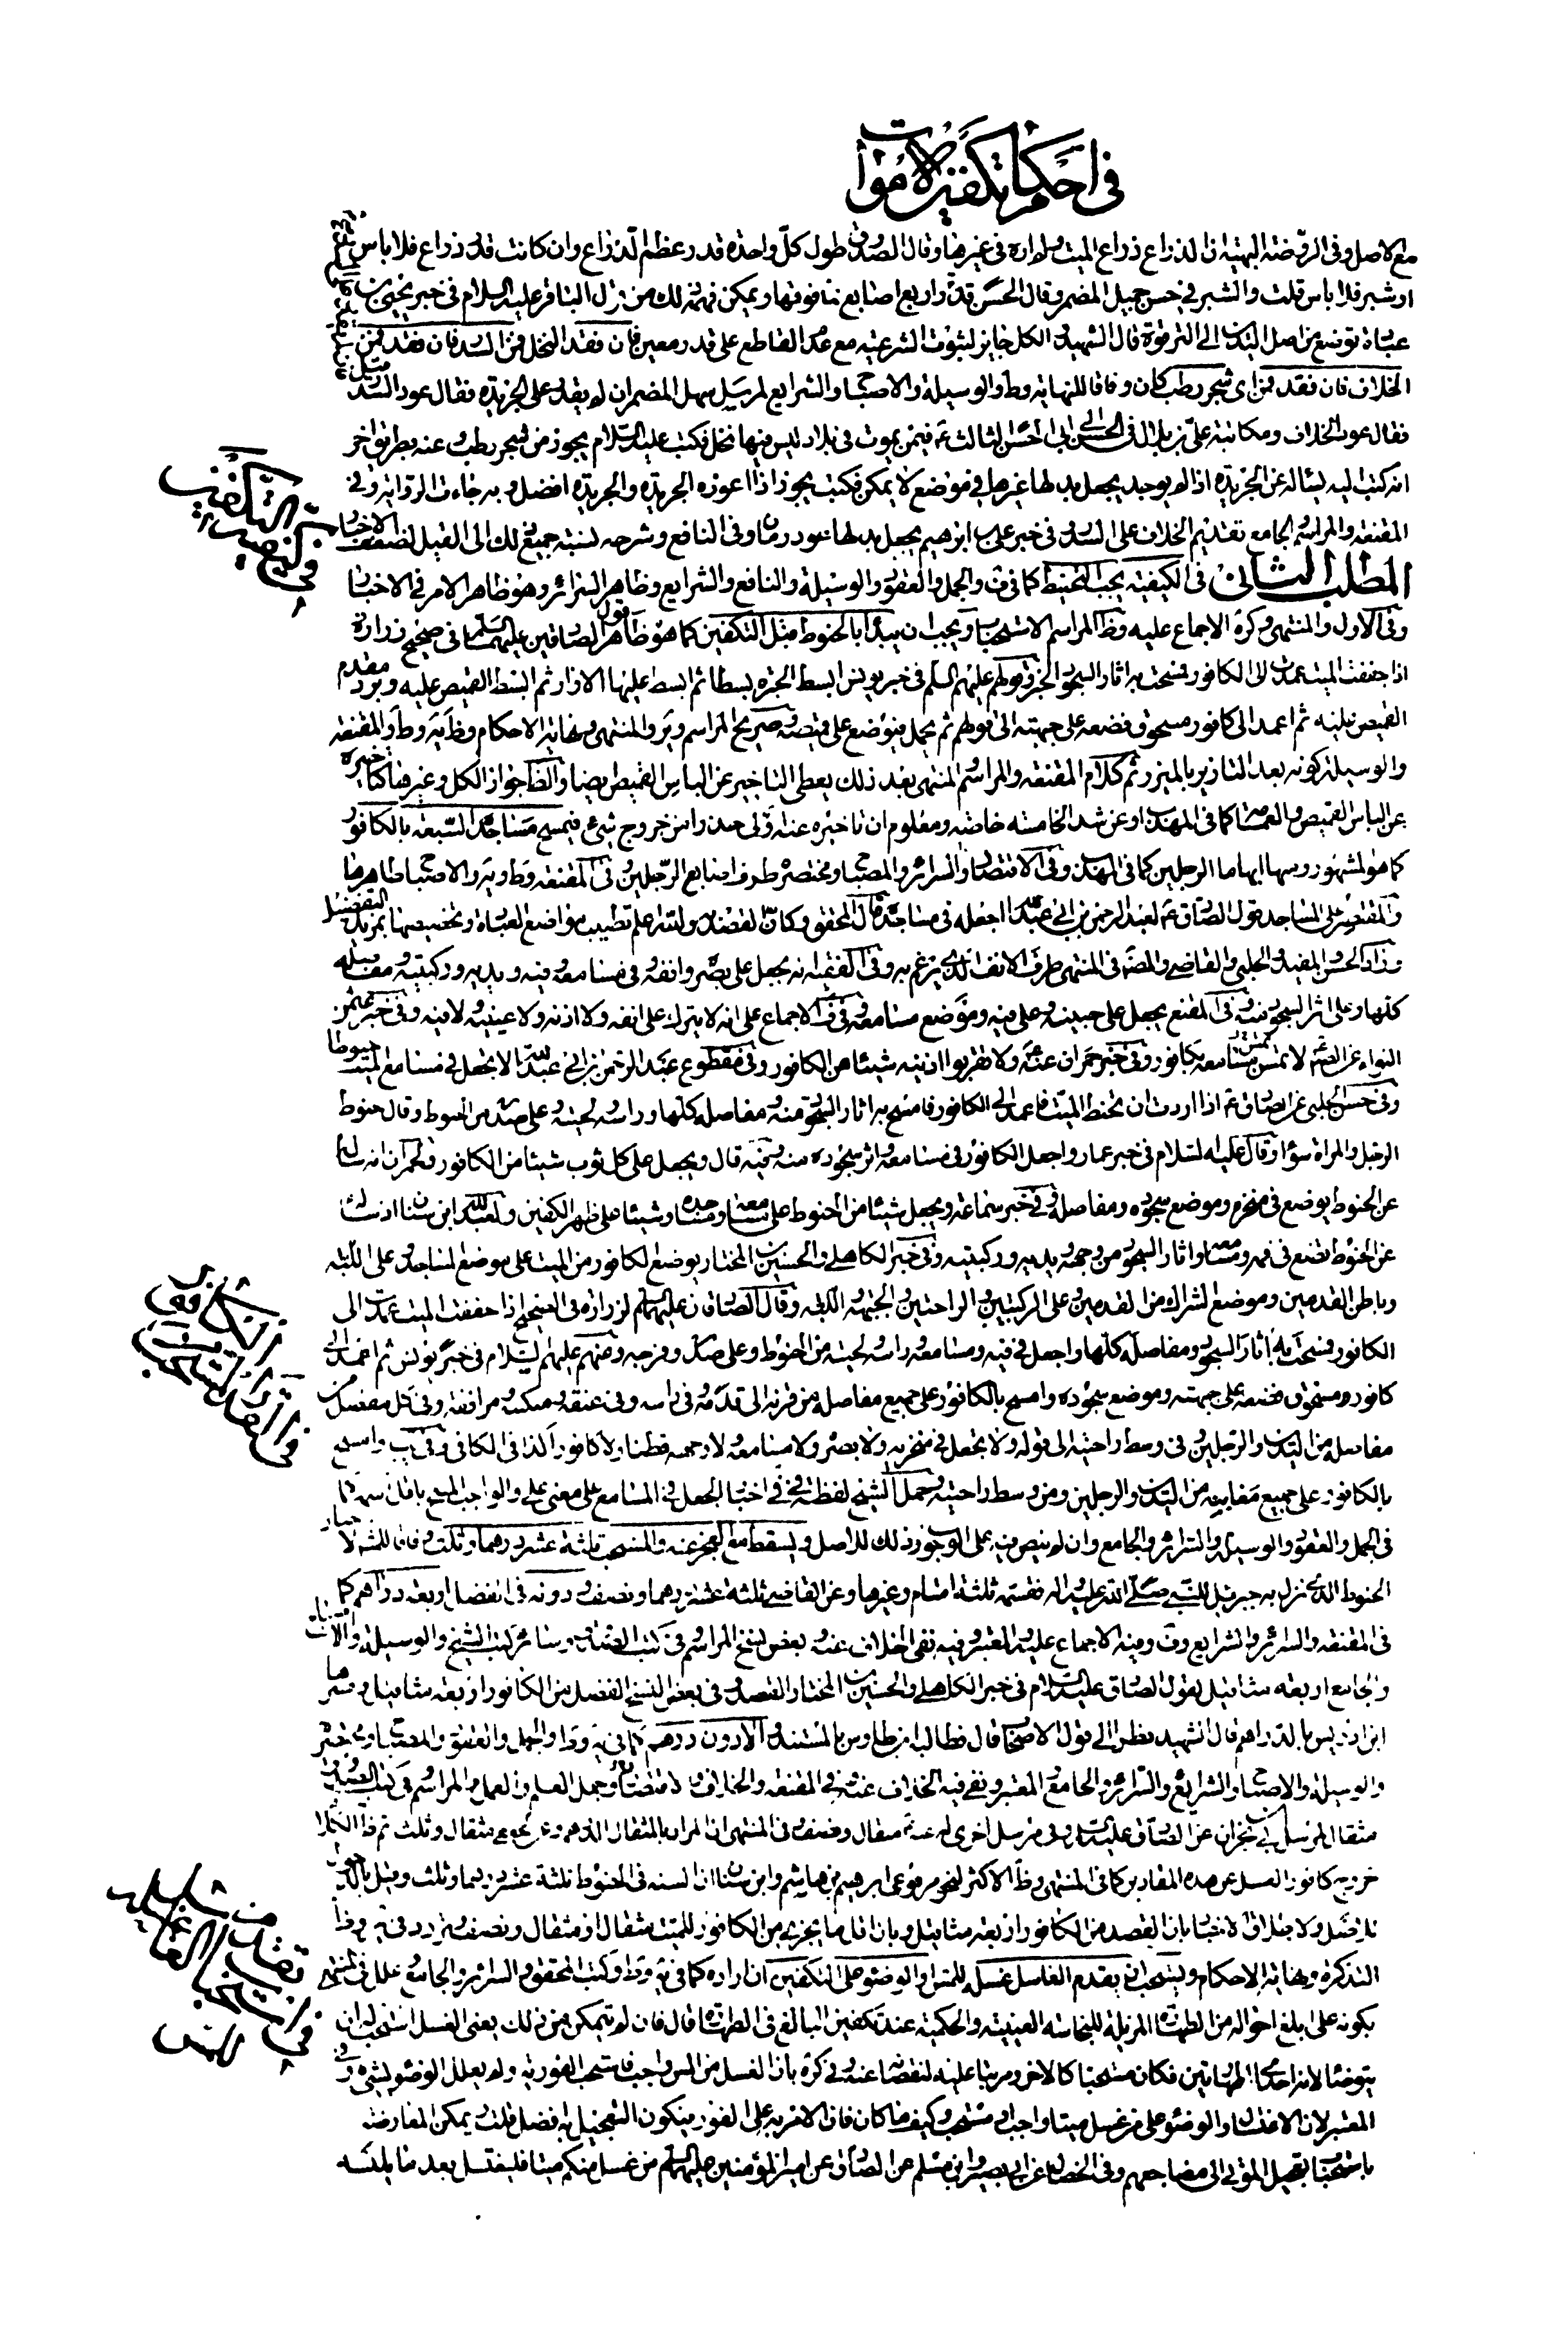 في احكام تكفين الاموات
مع الاصل وفي الروضة البهية ان الذراع ذراع الميت ولم اره في غيرها وقال الصدوق طول كل واحدة قدر عظم الذراع وان كانت قدر ذراع فلا باس
او شبر فلا باس قلت والشبر في حسن جميل المضمر وقال الحسن قدر اربع اصابع فما فوقها ويمكن فهمه لك من قول الباقر عليه السلام في خبر يحيى بن
عبادة توضع من اصل اليدين الى الترقوة قال الشهيد والكل جايز لثبوت الشرعية مع عدم القاطع على قدر معين فان فقد النخل فمن السدر فان فقد فمن
الخلاف فان فقد فمن اي شجر رطب كان وفاقا للنهاية وط والوسيلة والاصباح والشرايع لمرسل سهل المضمر ان لم يقدر على الجريدة فقال عود السدر قيل
فقال عود الخلاف ومكاتبة علي بن بلال الى ابي الحسن الثالث ع فيمن يموت في بلاد ليس فيها نخل فكتب عليه السلام يجوز من شجر رطب وعنه بطريق اخر
انه كتب اليه يساله عن الجريدة اذا لم يوجد يجعل بدلها غيرها في موضع لا يمكن فكتب يجوز اذا اعوزه الجريدة والجريدة افضل وبه جاءت الرواية وفي
المقنعة والمراسم والجامع تقديم الخلاف على السدر وفي خبر علي بن ابرهيم يجعل بدلها عود رمان وفي النافع وشرحه نسبة جميع ذلك الى القيل لضعف الاخبار
المطلب الثاني في الكيفية يجب التحنيط كما في ف والجمل والعقود والوسيلة والنافع والشرايع وظاهر السرائر وهو ظاهر الامر في الاخبار
وفي الاول والمنتهى وكرة الاجماع عليه وظ المراسم الاستحباب ويجب ان يبدأ بالحنوط قبل التكفين كما هو ظاهر قول الصادقين عليهما السلام في صحيح زرارة
اذا جففت الميت عمدت الى الكافور فمسحت به اثار السجود الخ وقولهم عليهم السلم في خبر يونس ابسط الحبرة بسطا ثم ابسط عليها الازار ثم ابسط القميص عليه ويرد مقدم
القميص عليه ثم اعمد الى كافور مسحوق فضعه على جبهته الى قولهم ثم يحمل فيوضع على قميصه وصريح المراسم وير والمنتهى ونهاية الاحكام وظ ية وط والمقنعة
والوسيلة كونه بعد التازير بالميزر ثم كلام المقنعة والمراسم والمنتهى بعد ذلك يعطي التاخير عن الباس القميص ايضا والظ جواز الكل وغيرها كتاخيره
عن الباس القميص والعمامة كما في المهذب او عن شد الخامسة خاصة ومعلوم ان تاخيره عنه اولى حذرا من خروج شيء فيمسح مساجده السبعة بالكافور
كما هو المشهور ومنها ابهاما الرجلين كما في المهذب وفي الاقتصاد والسرائر والمصباح ومختصره طرف اصابع الرجلين وفي المقنعة وط وية والاصباح ظاهرها
والمقتصر على المساجد قول الصادق ع لعبد الرحمن بن ابي عبد الله اجعله في مساجده قال المحقق وكان القصد والله اعلم تطييب مواضع العبادة وتخصيصها بمزيد التفضيل
وزاد الحسن والمفيد والحلبي والقاضي والمصنف في المنتهى طرف الانف الذي يرغم به وفي الفقيه انه يجعل على بصره وانفه وفي مسامعه وفيه ويديه وركبتيه ومفاصله
كلها وعلى اثر السجود منه وفي المقنع يجعل على جبينه وعلى فيه وموضع مسامعه وفي ف الاجماع على انه لا يترك على انفه ولا اذنه ولا عينيه ولا فيه وفي خبر عثمن
النواء عن الصادق ع لا تمس مسامعه بكافور وفي خبر حمران عنه ع ولا تقربوا اذنيه شيئا من الكافور وفي مقطوع عبد الرحمن بن ابي عبد الله لا تجعل في مسامع الميت حنوطا
وفي حسن الحلبي عن الصادق ع اذا اردت ان تحنط الميت فاعمد الى الكافور فامسح به اثار السجود منه ومفاصله كلها وراسه ولحيته وعلى صدره من الحنوط وقال حنوط
الرجل والمراة سواء وقال عليه السلام في خبر عمار واجعل الكافور في مسامعه واثر سجوده منه وفيه قال ويجعل على كل ثوب شيئا من الكافور ولحمران انه ساله
عن الحنوط يوضع في منخره وموضع سجوده ومفاصله وفي خبر سماعة ويجعل شيئا من الحنوط على مسامعه ومساجده وشيئا على ظهر الكفين ولعبد الله ابن سنان اذ ساله
عن الحنوط تضع في فمه ومسامعه واثار السجود من وجهه ويديه وركبتيه وفي خبر الكاهلي والحسين بن المختار يوضع الكافور من الميت على موضع المساجد وعلى اللبة
وباطن القدمين وموضع الشراك من القدمين وعلى الركبتين والراحتين والجبهة واللبة وقال الصادقان عليهما السلم لزرارة في الصحيح اذا جففت الميت عمدت الى
الكافور فمسحت به اثار السجود ومفاصله كلها واجعل في فيه ومسامعه وراسه ولحيته من الحنوط وعلى صدره وفرجه وعنهم عليهم السلام في خبر يونس ثم اعمد الى
كافور مسحوق فضعه على جبهته وموضع سجوده وامسح بالكافور على جميع مفاصله من قرنه الى قدمه وفي راسه وفي عنقه ومنكبيه ومرافقه وفي كل مفصل من
مفاصله من اليدين والرجلين وفي وسط راحتيه الى قوله ولا يجعل في منخريه ولا بصره ولا مسامعه ولا وجهه قطنا ولا كافورا كذا في الكافي وفي يب وامسح
بالكافور على جميع مغابنه من اليدين والرجلين ومن وسط راحتيه وحمل الشيخ لفظة في في اخبار الجعل في المسامع على معنى على والواجب المسح باقل اسمه كما
في الجمل والعقود والوسيلة والسرائر والجامع وان لم ينص فيه على الوجوب وذلك للاصل ويسقط مع العجز عنه والمستحب ثلثة عشر درهما وثلث وفاقا للمشهور لاخبار
الحنوط الذي نزل به جبرئيل للنبي صلى الله عليه واله فقسمه ثلثة اقسام وغيرها وعن القاضي ثلثة عشر درهما ونصف ودونه في الفضل اربعة دراهم كما
في المقنعة والسرائر والشرايع وف وفيه الاجماع عليه والمعتبر وفيه نفي الخلاف عنه وبعض نسخ المراسم وفي كتب الصدوق وسائر كتب الشيخ والوسيلة والاصباح
والجامع اربعة مثاقيل لقول الصادق عليه السلام في خبر الكاهلي والحسين بن المختار القصد وفي بعض النسخ الفضل من الكافور اربعة مثاقيل وفسرها
ابن ادريس بالدراهم قال الشهيد نظرا الى قول الاصحاب قال وطالبه ابن طاوس بالمستند والادون درهم كما في ية وط والجمل والعقود والمصباح ومختصره
والوسيلة والاصباح والشرايع والسرائر والجامع والمعتبر ونفي فيه الخلاف عنه وفي المقنعة والخلاف والاقتصاد وجمل العلم والعمل والمراسم وفي كتب الصدوق
مثقال لمرسل ابن ابي نجران عن الصادق عليه السلم وفي مرسل اخرى له عنه ع مثقال ونصف وفي المنتهى ان المراد بالمثقال الدرهم وعن الجعفي مثقال وثلث ثم ظ الكل
خروج كافور الغسل عن هذه المقادير كما في المنتهى وظ الاكثر لنحو مرفوع ابرهيم بن هاشم وابن سنان ان السنة في الحنوط ثلثة عشر درهما وثلث وقيل بالدخول
للاصل ولاطلاق الاخبار بان القصد من الكافور اربعة مثاقيل وبان اقل ما يجزي من الكافور للميت مثقال او مثقال ونصف وتردد في ية وظ
التذكرة ونهاية الاحكام ويستحب ان يقدم الغاسل غسله للمس او الوضوء على التكفين ان اراده كما في ية وط وكتب المحقق والسرائر والجامع علل في المنتهى
بكونه على ابلغ احواله من الطهارة المزيلة للنجاسة العينية والحكمية عند تكفين البالغ في الطهارة قال فان لم يتمكن من ذلك يعني الغسل استحب له ان
يتوضا لانه احدى الطهارتين فكان مستحبا كالاخر ومرتبا عليه لنقصانه عنه وفي كرة بان الغسل من المس واجب فاستحب الفورية ولم يعلل الوضوء بشيء وفي
المعتبر لان الاغتسال والوضوء على من غسل ميتا واجب او مستحب وكيف ما كان فان الامر به على الفور فيكون التعجيل به افضل قلت ويمكن المعارضة
باستحباب تعجيل الموتى الى مضاجعهم وفي الخصال عن ابي بصير وابن مسلم عن الصادق عن امير المؤمنين عليهما السلم من غسل منكم ميتا فليغتسل بعد ما يلبسه
في كيفية التكفين